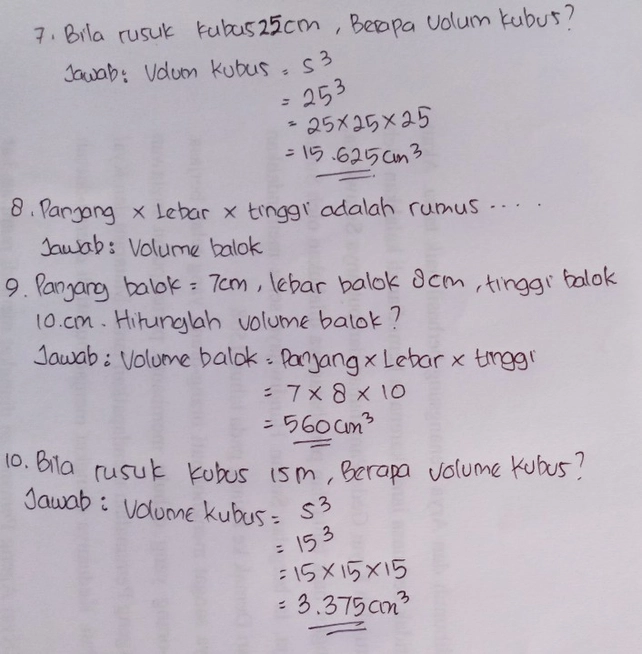 7. Bila rusuk kubus 25cm, Berapa Volum kubus?
Jawab: Volum kubus = S³
= 25³
= 25×25×25
= 15.625 cm³
8. Panjang × Lebar × tinggi adalah rumus ....
Jawab: Volume balok
9. Panjang balok = 7cm, lebar balok 8cm, tinggi balok
10.cm. Hitunglah volume balok?
Jawab: Volume balok = Panjang × Lebar × tinggi
= 7 × 8 × 10
= 560 cm³
10. Bila rusuk kubus 15m, Berapa volume kubus?
Jawab: Volume kubus = S³
= 15³
= 15×15×15
= 3.375 cm³